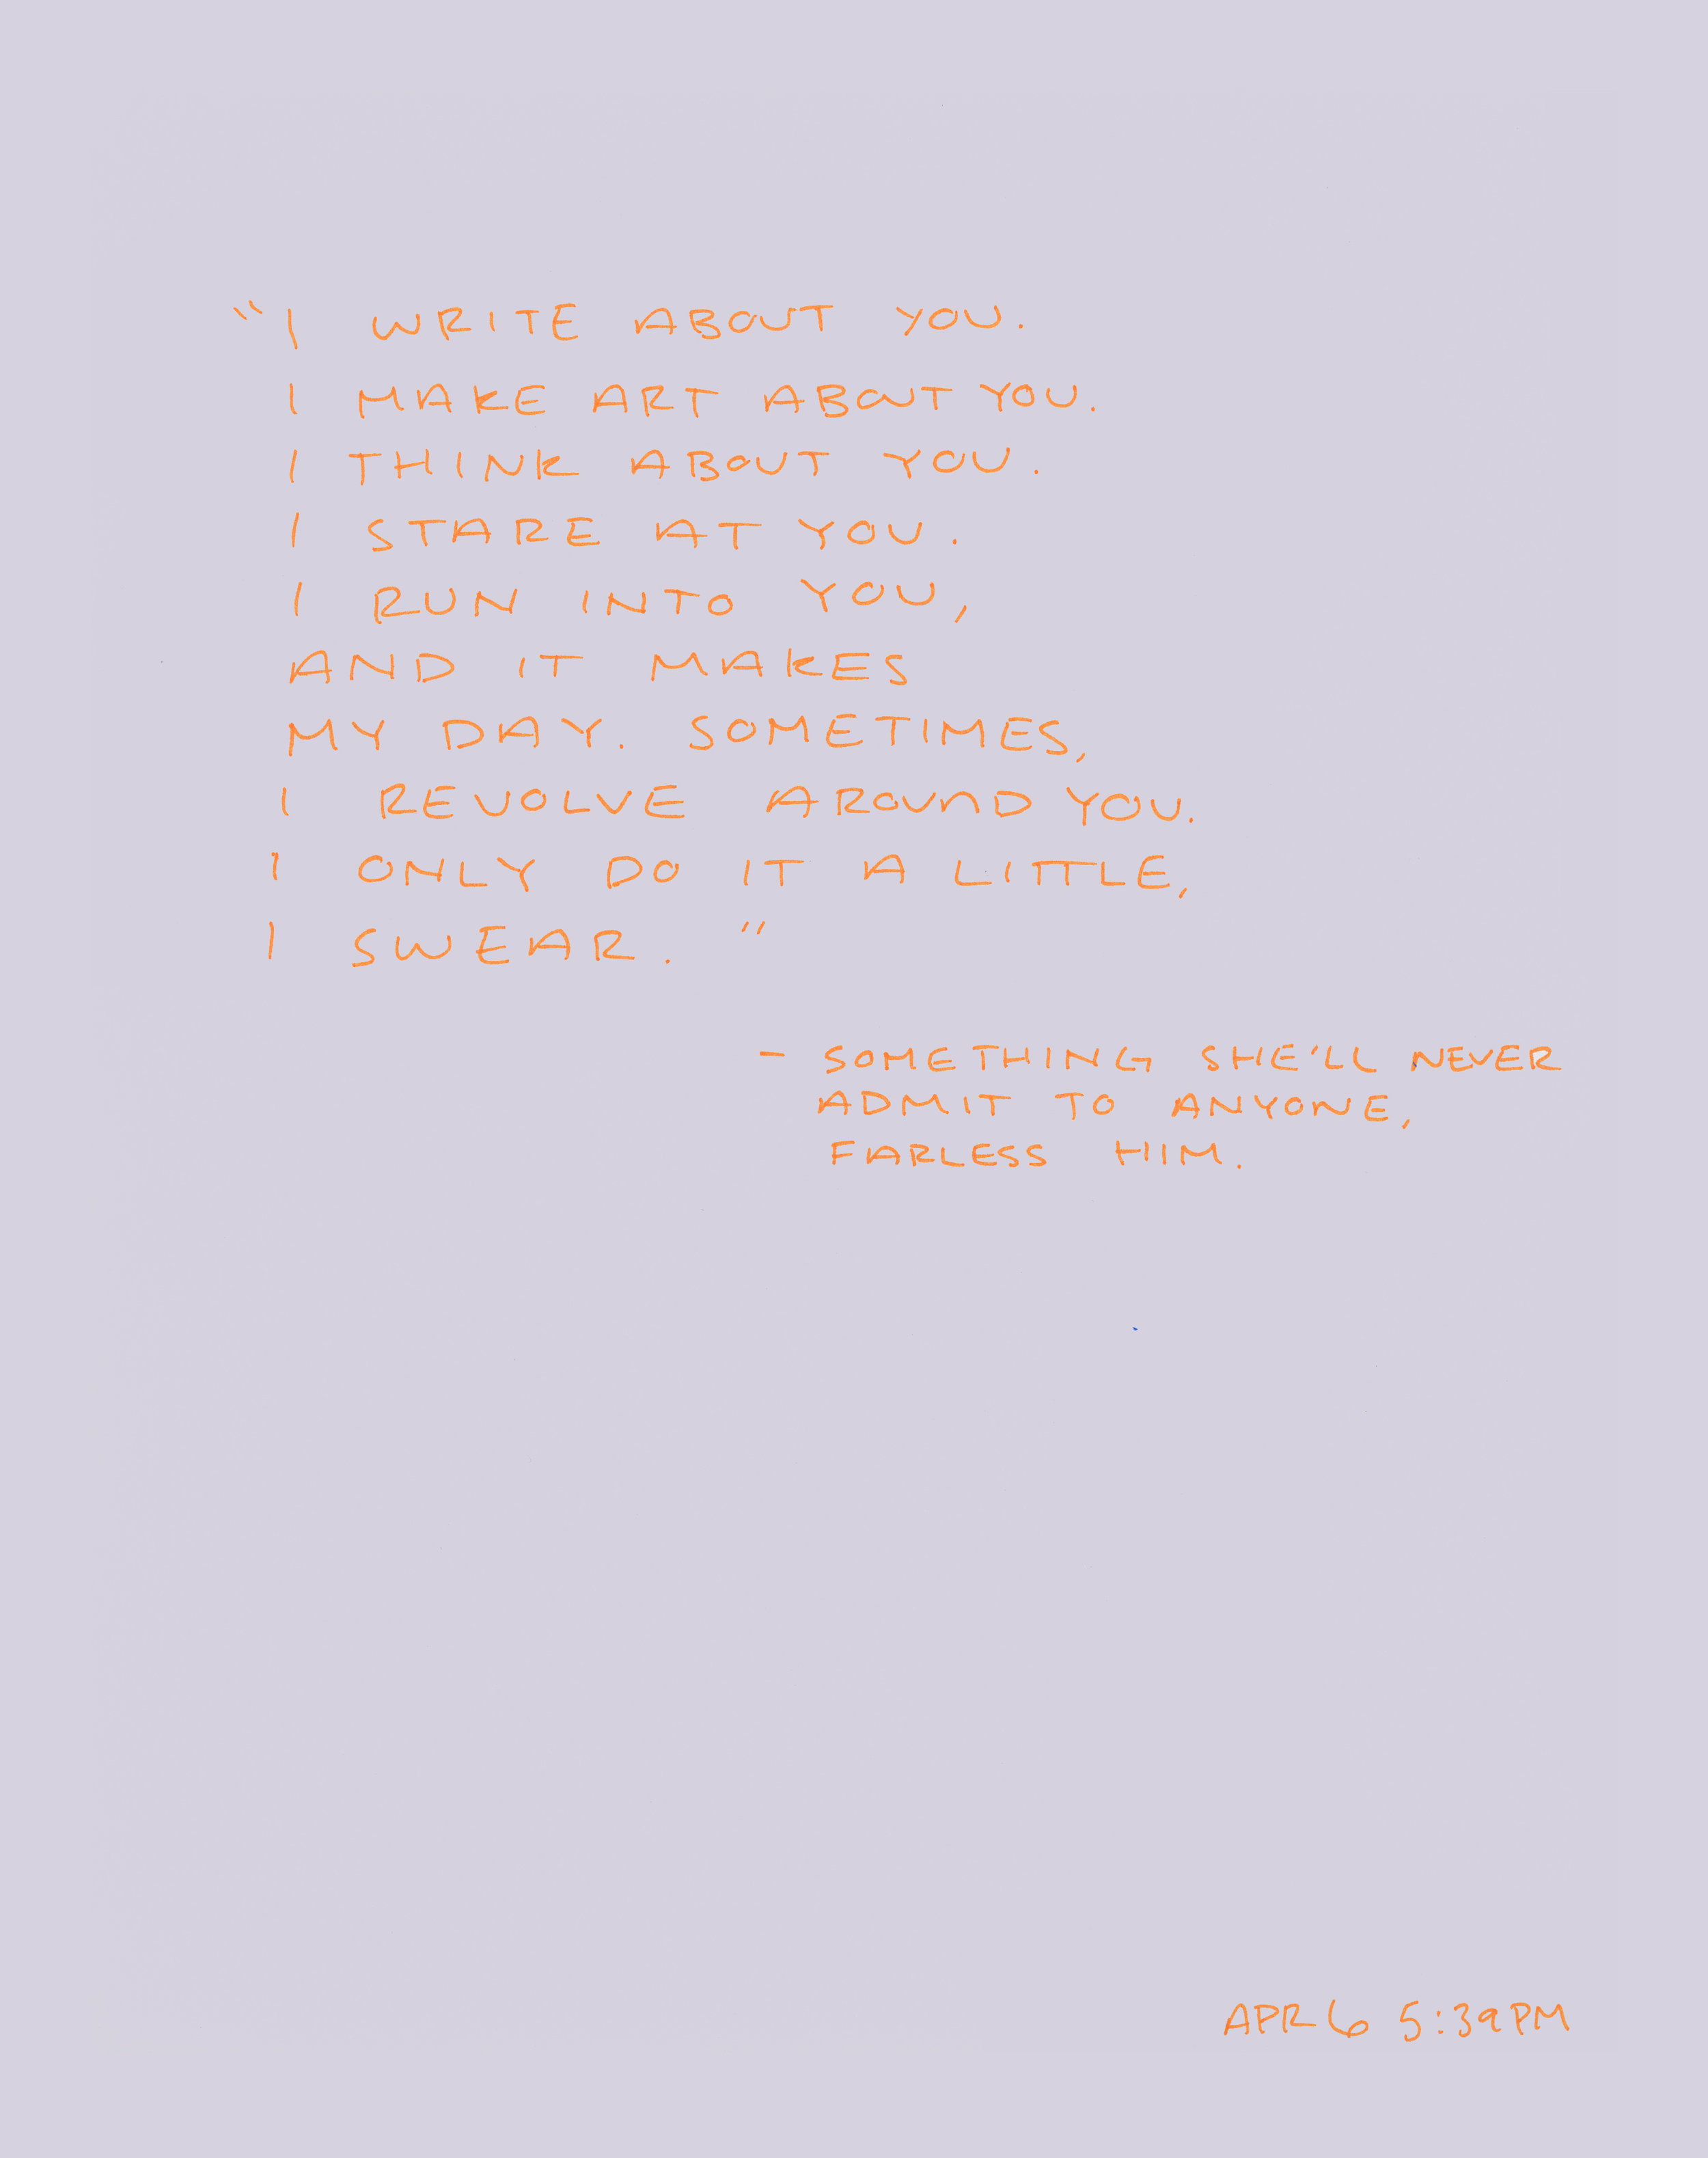 "I WRITE ABOUT YOU.
I MAKE ART ABOUT YOU.
I THINK ABOUT YOU.
I STARE AT YOU.
I RUN INTO YOU,
AND IT MAKES
MY DAY. SOMETIMES,
I REVOLVE AROUND YOU.
I ONLY DO IT A LITTLE,
I SWEAR."
- SOMETHING SHE'LL NEVER
ADMIT TO ANYONE,
FARLESS HIM.
APR 6 5:39PM